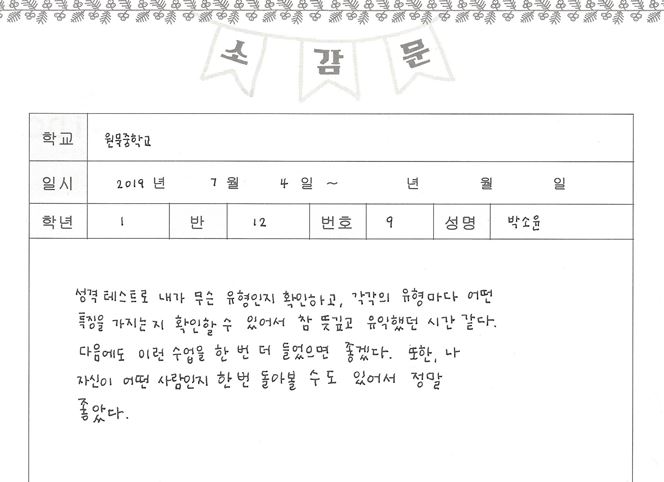 소감문
학교 원묵중학교
일시 2019 년 7 월 4 일 ~ 년 월 일
학년 1 반 12 번호 9 성명 박소윤
성격 테스트로 내가 무슨 유형인지 확인하고, 각각의 유형마다 어떤
특징을 가지는지 확인할 수 있어서 참 뜻깊고 유익했던 시간 같다.
다음에도 이런 수업을 한 번 더 들었으면 좋겠다. 또한, 나
자신이 어떤 사람인지 한번 돌아볼 수도 있어서 정말
좋았다.